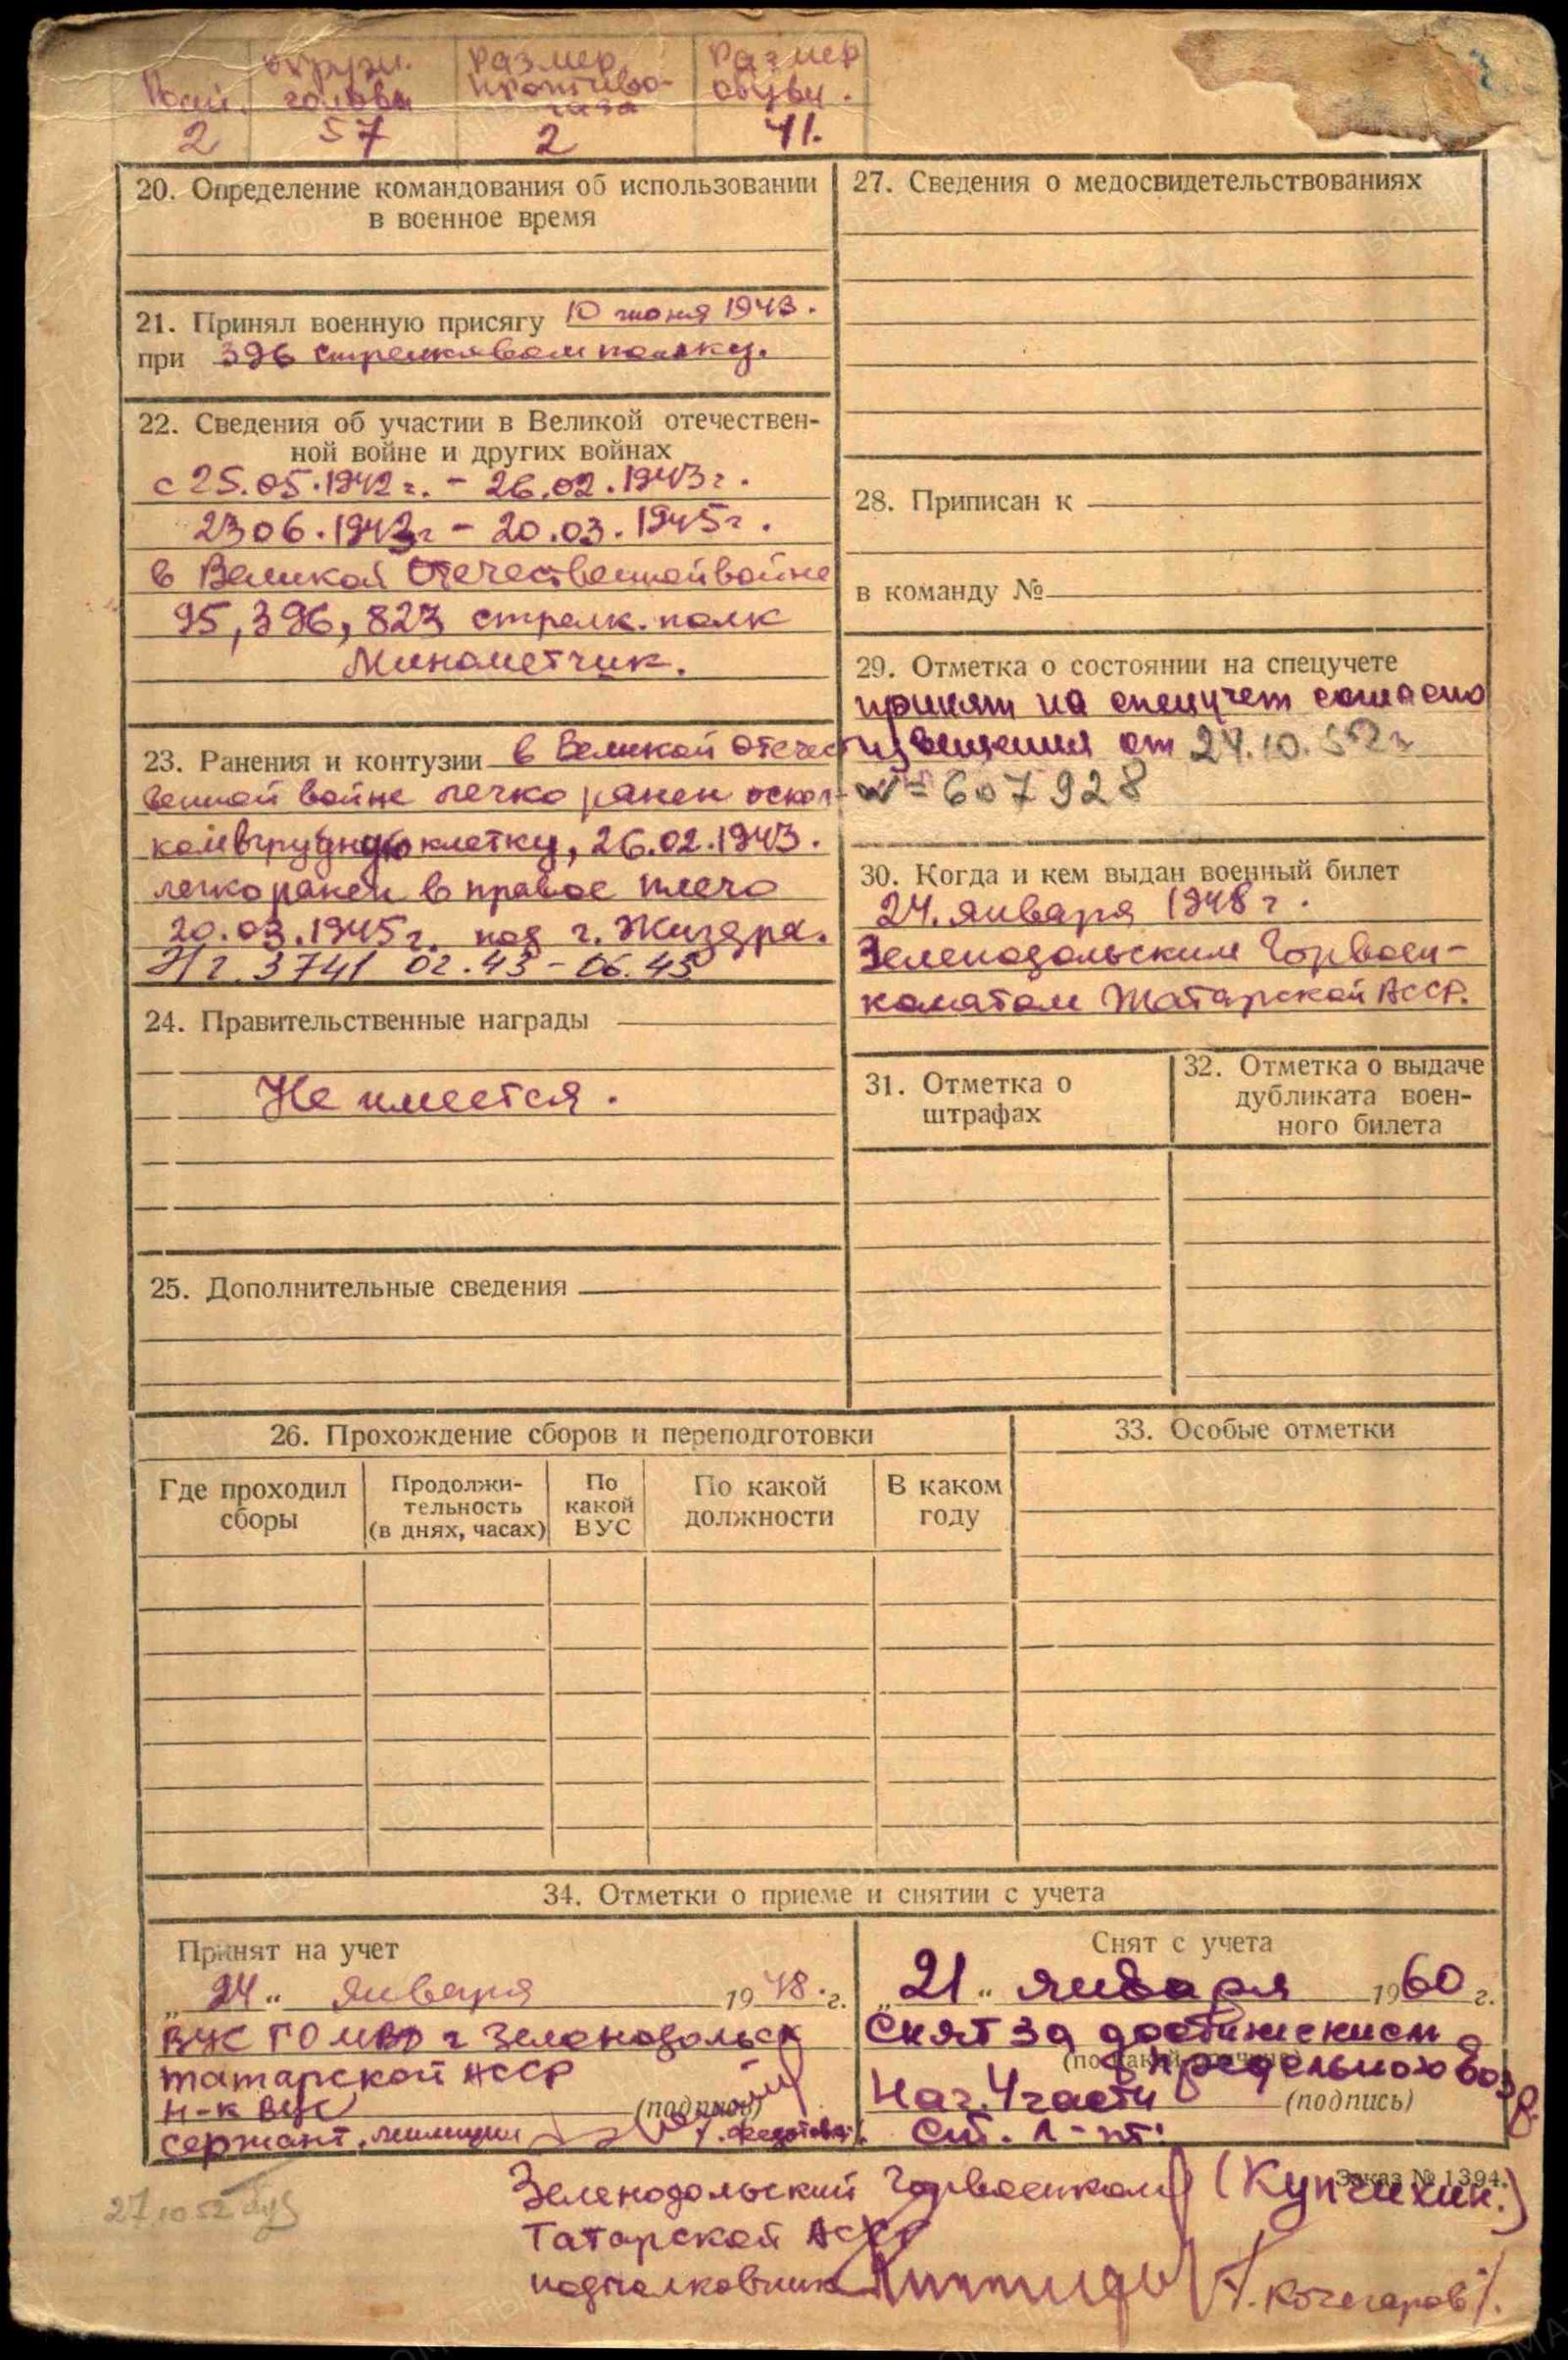 Рост. окружн. головы размер противо- газа Размер обуви.
2 57 2 41.
20. Определение командования об использовании
в военное время
21. Принял военную присягу 10 июня 1943.
при 396 стрелковом полку.
22. Сведения об участии в Великой отечествен-
ной войне и других войнах
с 25.05.1942 г. - 26.02.1943 г.
23 06.1943г - 20.03.1945г.
в Великой Отечественной войне
95, 396, 823 стрелк. полк
Минометчик.
23. Ранения и контузии в Великой отечест
венной войне легко ранен оскол-
ком в грудную клетку, 26.02.1943.
легко ранен в правое плечо
20.03.1945г. под г. Жиздра.
Н г. 3741 02.43 - 06.43
24. Правительственные награды
Не имеется.
25. Дополнительные сведения
27. Сведения о медосвидетельствованиях
28. Приписан к
в команду №
29. Отметка о состоянии на спецучете
принят на спецучет согласно
извещения от 24.10.52г
№ 607928
30. Когда и кем выдан военный билет
24. января 1948 г.
Зеленодольским Горвоен-
коматом Татарской АССР.
31. Отметка о
штрафах
32. Отметка о выдаче
дубликата воен-
ного билета
26. Прохождение сборов и переподготовки
Где проходил
сборы
Продолжи-
тельность
(в днях, часах)
По
какой
ВУС
По какой
должности
В каком
году
33. Особые отметки
34. Отметки о приеме и снятии с учета
Принят на учет
„24“ января 1948.г.
ВУС ГО МВД г Зеленодольск
татарской АССР
Н-к ВУС (подпись)
сержант. милиции /. Федотова./.
Снят с учета
„21“ января 1960 г.
Снят за достижением
предельного воз
Нач. 4 части (подпись)
Ст. л-т.
Заказ № 1394.
(Купчихин.)
Зеленодольский Горвоенком
Татарской АССР
подполковник /. Кочегаров /.
27.10.52